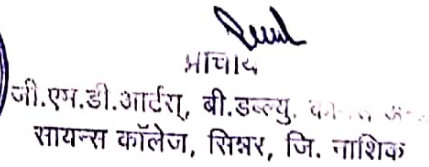 प्राचार्य
जी.एम.डी.आर्टस्, बी.डब्ल्यु.
सायन्स कॉलेज, सिन्नर, जि. नाशिक